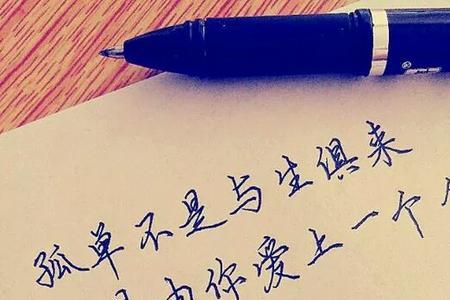 孤单不是与生俱来
由你爱上一个